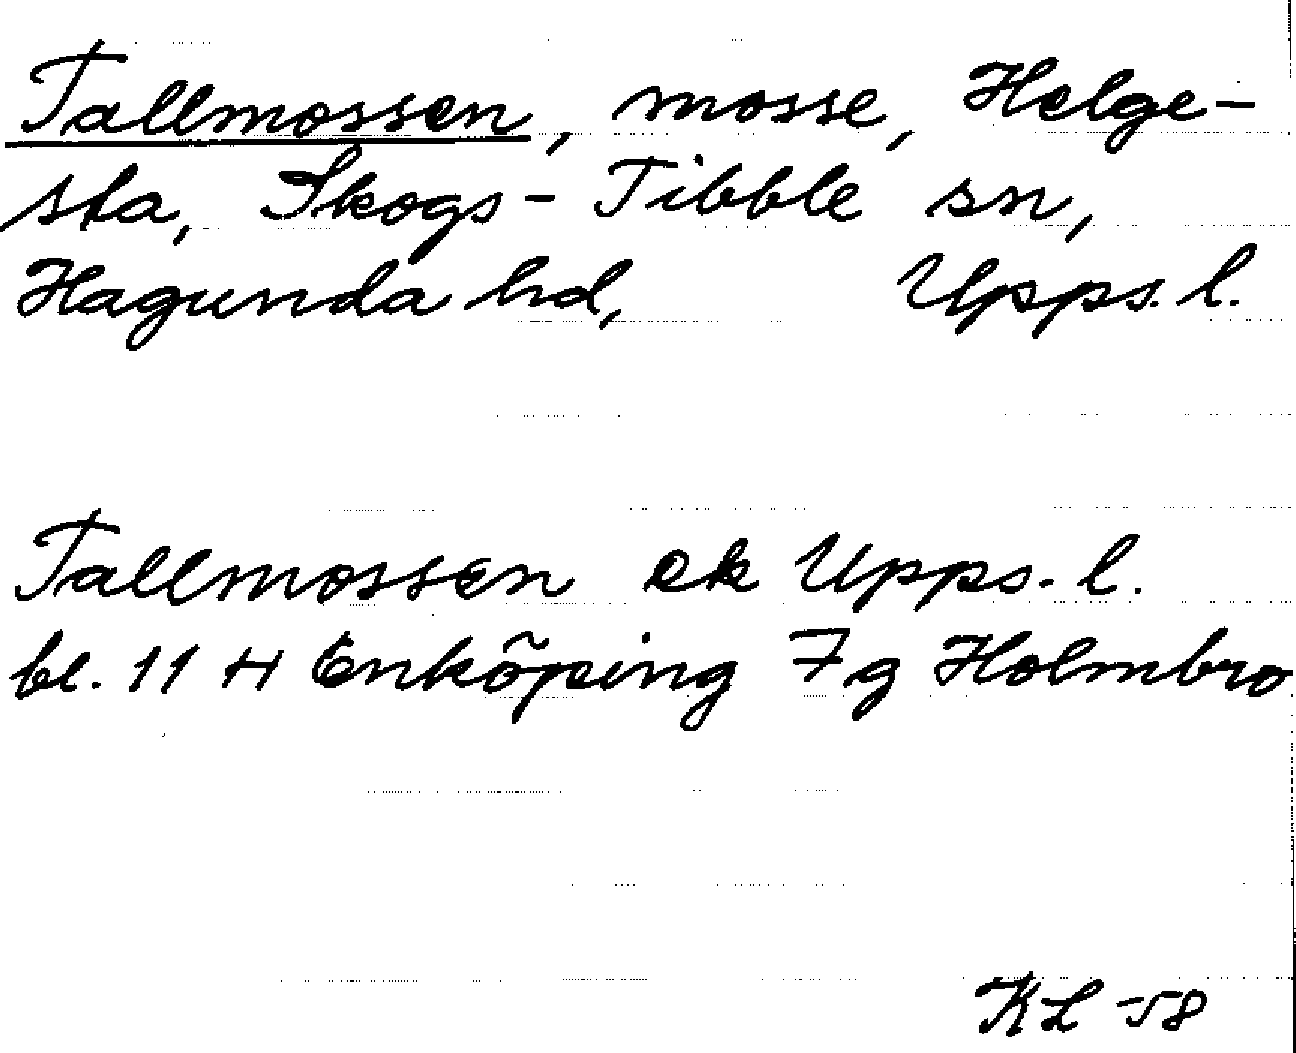 Tallmossen, mosse, Helge-
sta, Skogs-Tibble sn,
Hagunda hd, Upps. l.
Tallmossen ek Upps. l.
bl. 11 H Enköping 7g Holmbro
KL -58